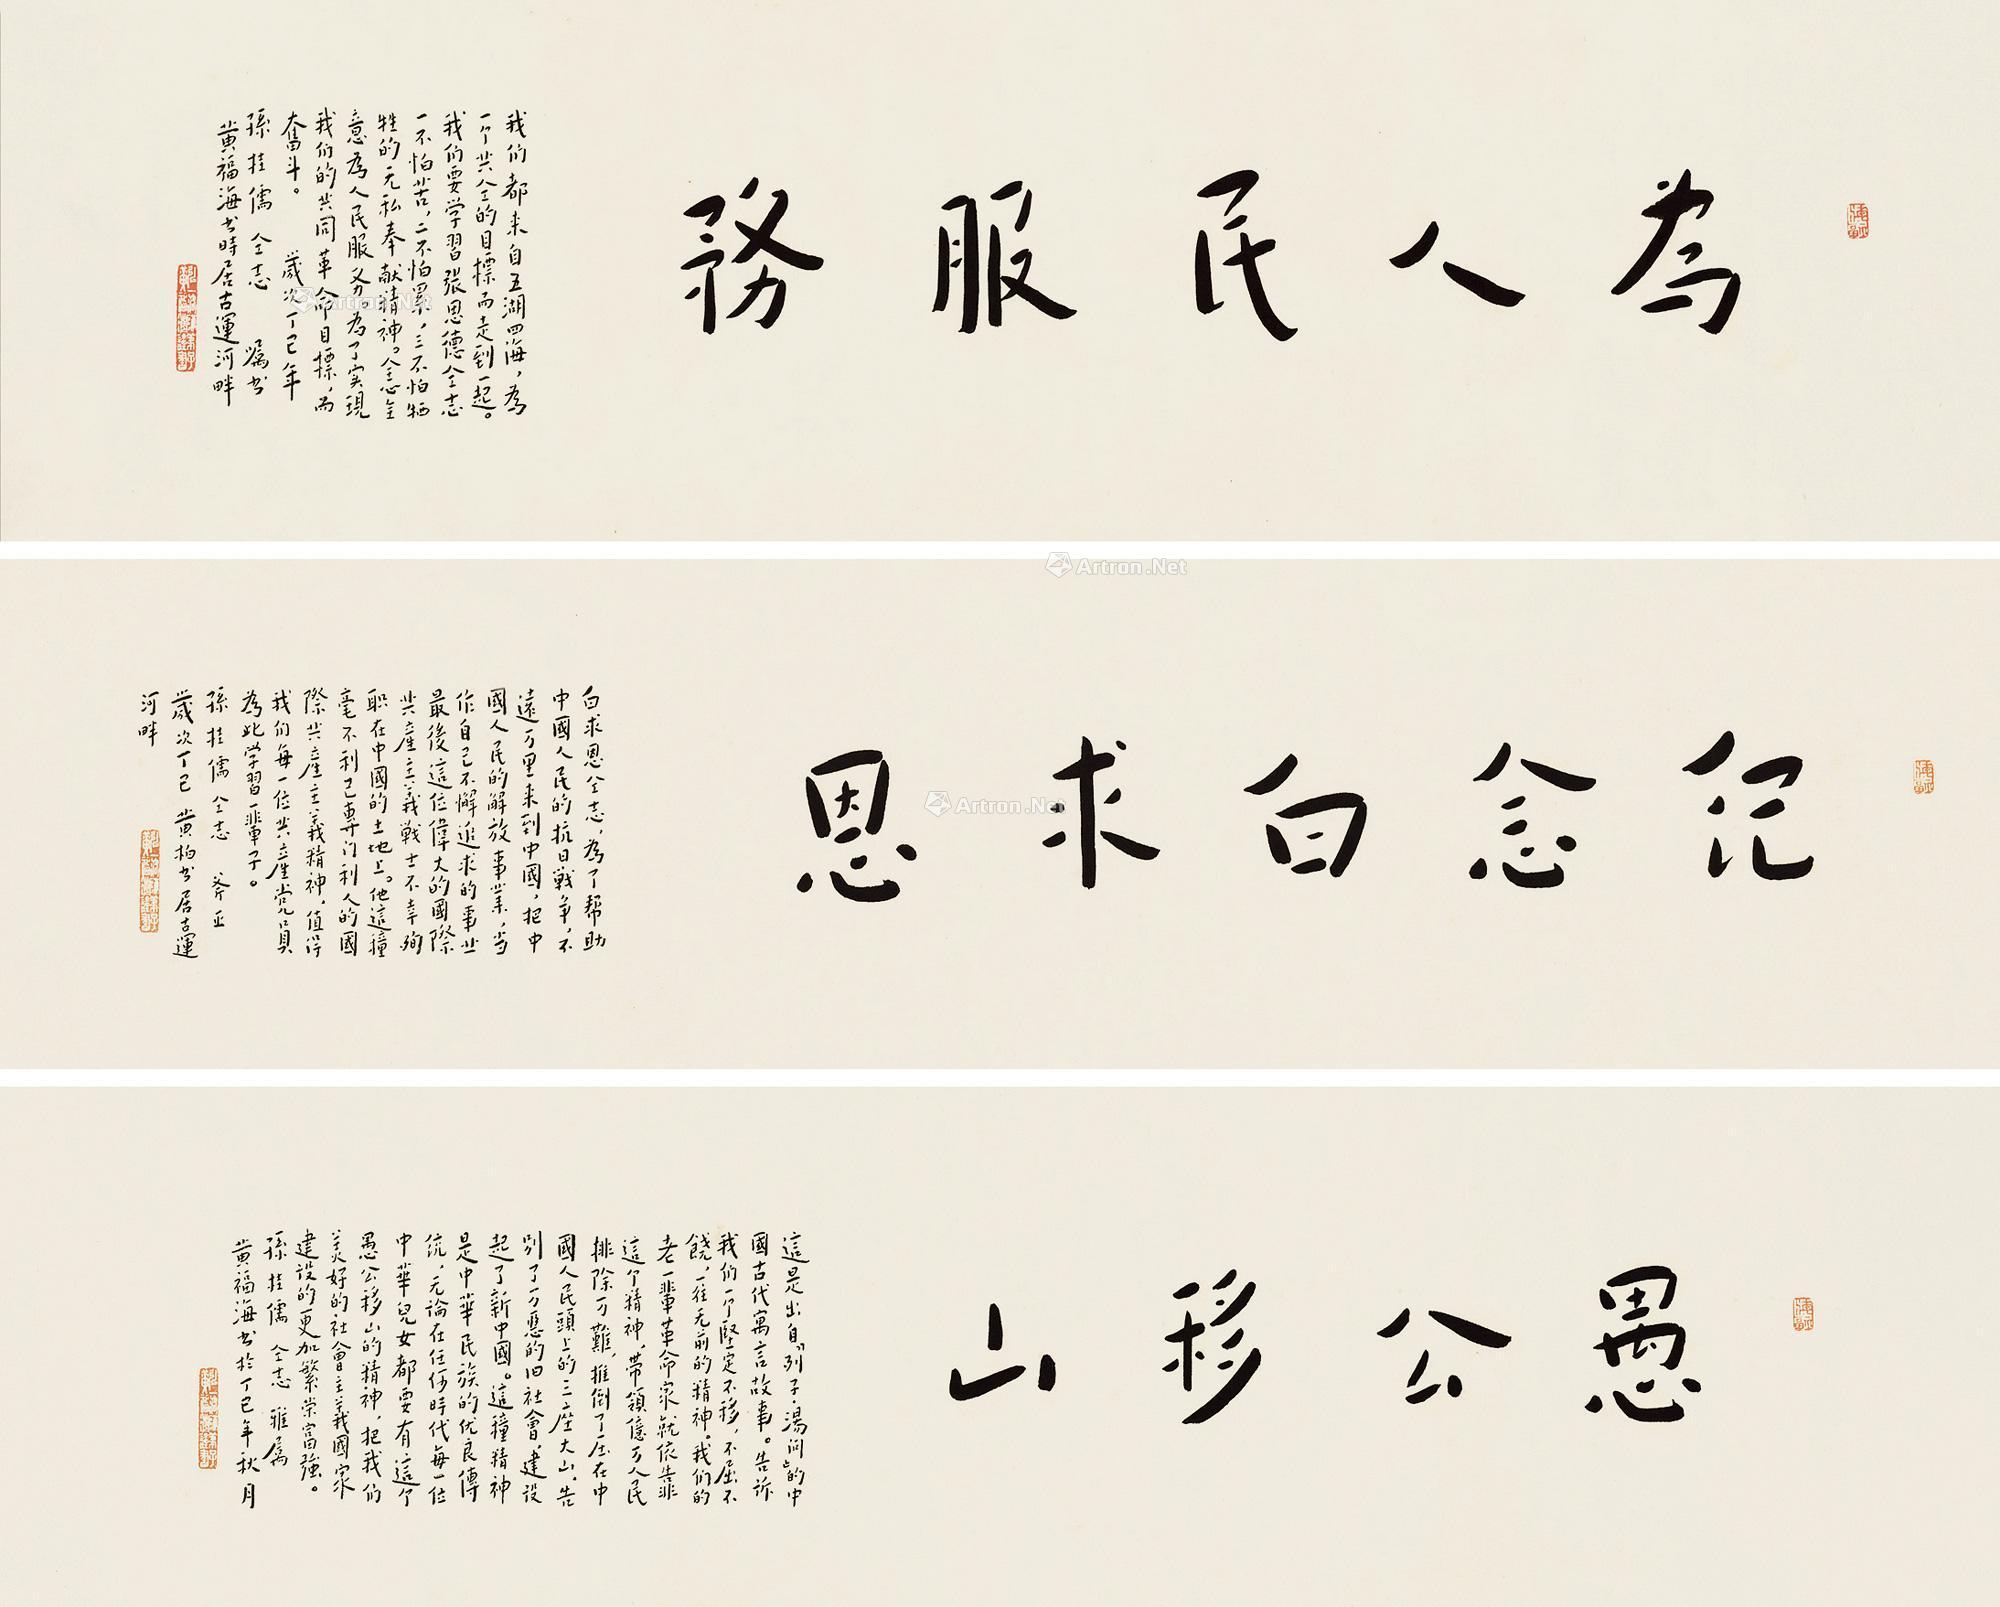 為人民服務
我们都来自五湖四海，為
一个共仝的目標而走到一起。
我们要学習張思德仝志
一不怕苦，二不怕累，三不怕牺
牲的无私奉献精神。仝志全
意為人民服务為了实現
我们的共同革命目標，而
奮斗。 歲次丁巳年
孫桂儒仝志 嘱书
黄福海书時居古運河畔
Artron.Net
Artron.Net
紀念白求恩
白求恩仝志，為了帮助
中國人民的抗日戰争，不
遠万里来到中國，把中
國人民的解放事業，当
作自己不懈追求的事业
最後這位偉大的國際
共産主義戰士不幸殉
职在中國的土地上。他這種
毫不利己專门利人的國
際共産主義精神，值得
我们每一位共産党員
為此学習一輩子。
孫桂儒仝志 斧正
歲次丁巳 黄柏书居古運
河畔
Artron.Net
愚公移山
這是出自《列子·湯问》的中
國古代寓言故事。告訴
我们一个堅定不移，不屈不
饒，一往无前的精神。我们的
老一輩革命家就依靠
這个精神，帶領億万人民
排除万難，推倒了压在中
國人民頭上的三座大山，告
别了万恶的旧社會，建設
起了新中國。這種精神
是中華民族的优良傳
统，无論在任何時代每一位
中華兒女都要有這个
愚公移山的精神，把我们
美好的社會主義國家
建設的更加繁荣富強。
孫桂儒仝志 雅属
黄福海书於丁巳年秋月